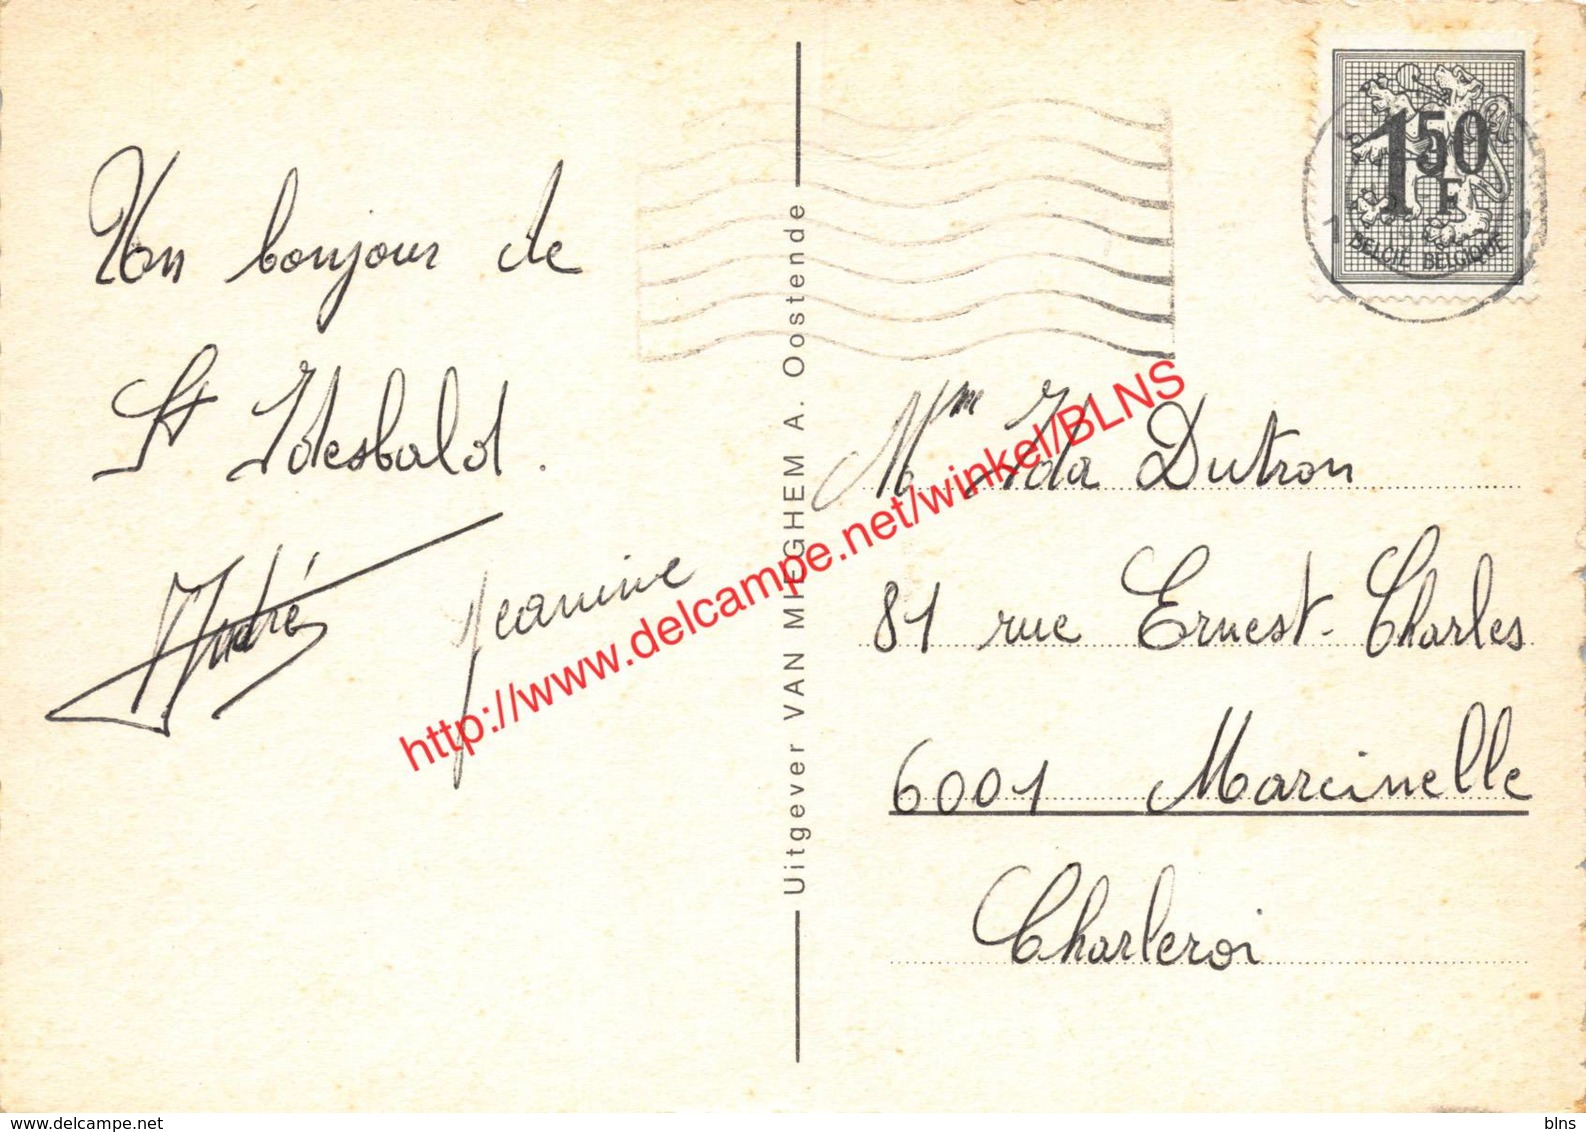 Un bonjour de
St Idesbald.
André Jeanine
Uitgever VAN MIEGHEM A. Oostende
1,50
F
BELGIË BELGIQUE
Mme Ida Dutron
81 rue Ernest-Charles
6001 Marcinelle
Charleroi
http://www.delcampe.net/winkel/BLNS
delcampe.net
blns